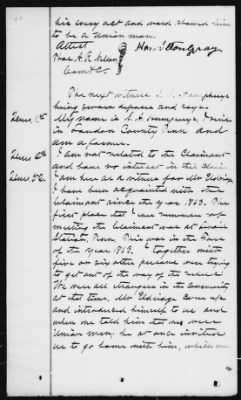 his every act and word showed him
to be a Union man.
Attest
Hon. Gray
The next witness
being sworn deposes and says.
Item 1st My name is I reside
in Loudon County Tenn and
am a farmer.
Item 2nd I am not related to the Claimant
and have no interest in the claim.
I am here as a witness for Mr Eldridge
I have been acquainted with the
Claimant since the year 1863. The
first place that I can remember of
meeting the Claimant was at
Station, Tenn. This was in the
of the year 1863. I together with
five or six other persons were trying
to get out of the way of the rebels
We were all strangers in the Community
at that time, Mr Eldridge came up
and introduced himself to us and
when we told him that we were
Union men, he at once invited
us to go home with him, which we